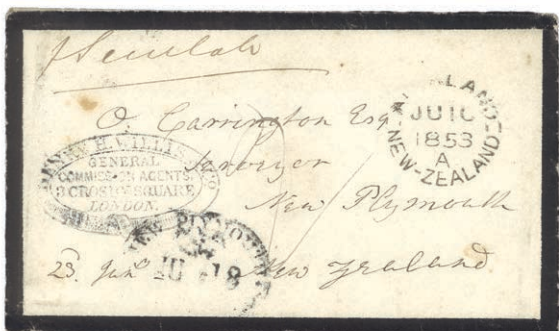 O. Carrington Esq.
Surveyor
New Plymouth
New Zealand
23
HENRY H. WILLIS & CO
GENERAL
COMMISSION AGENTS.
3 CROSBY SQUARE
LONDON.
AUCKLAND
JU 10
1853
A
NEW-ZEALAND
NEW PLYMOUTH
JU 18